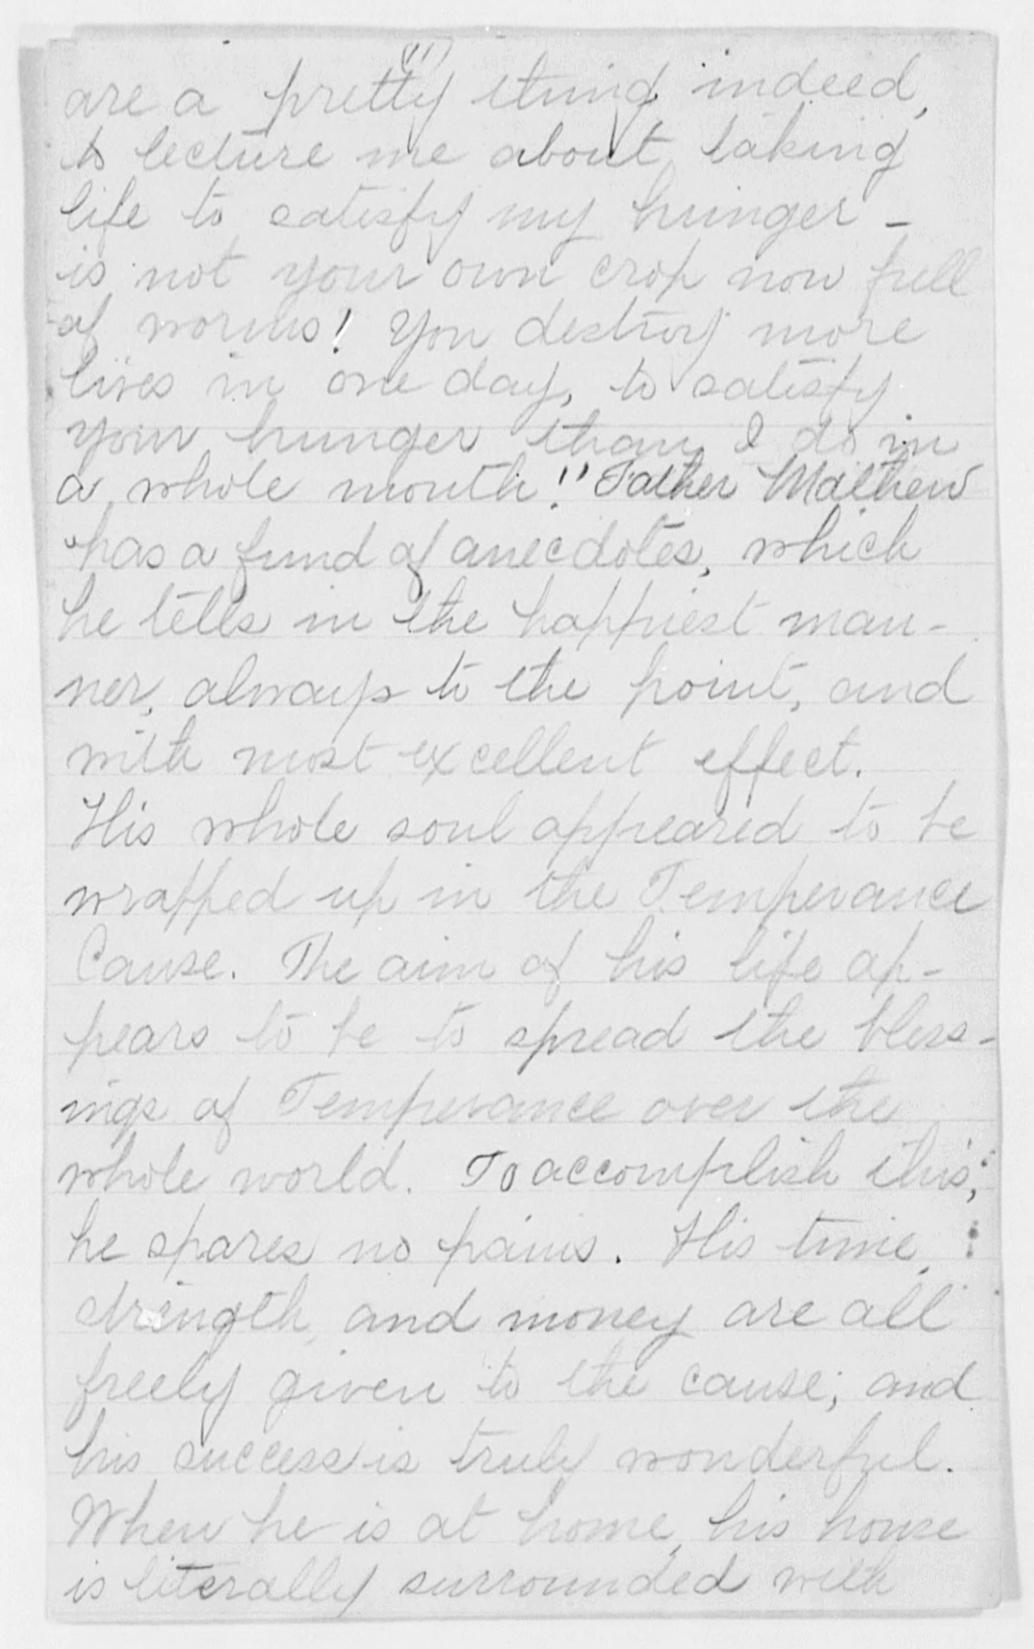 (11)
are a pretty thing indeed,
to lecture me about taking
life to satisfy my hunger -
is not your own crop now full
of worms! You destroy more
lives in one day, to satisfy
your hunger than I do in
a whole month!" Father Mathew
has a fund of anecdotes, which
he tells in the happiest man-
ner, always to the point, and
with most excellent effect.
His whole soul appeared to be
wrapped up in the Temperance
Cause. The aim of his life ap-
pears to be to spread the bless-
ings of Temperance over the
whole world. To accomplish this,
he spares no pains. His time,
strength, and money are all
freely given to the cause; and
his success is truly wonderful.
When he is at home, his house
is literally surrounded with